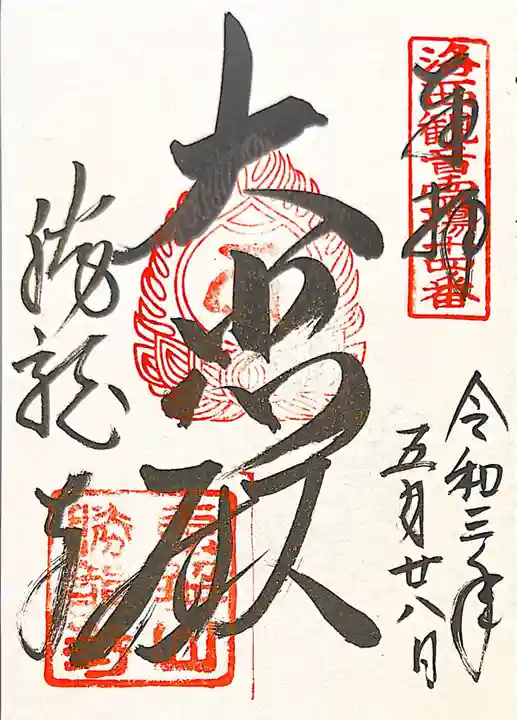 奉拝
洛西観音霊場第十四番
令和三年
五月廿八日
大悲殿
勝龍寺
勝龍寺